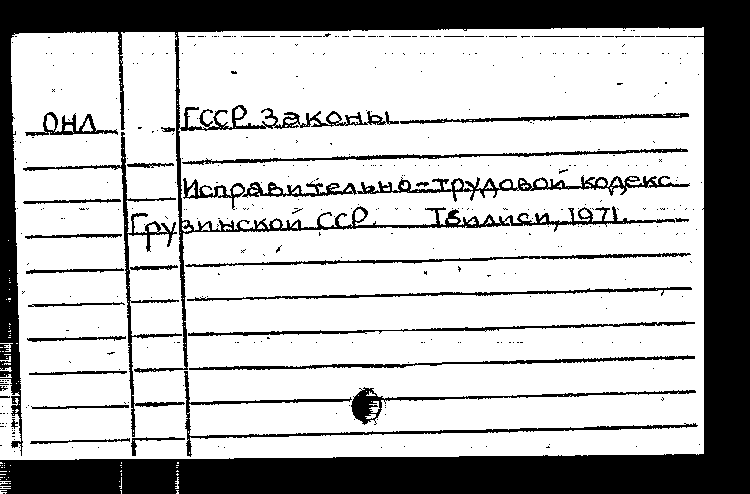 ОНЛ ГССР. Законы
Исправительно-трудовой кодекс
Грузинской ССР. Тбилиси, 1971.